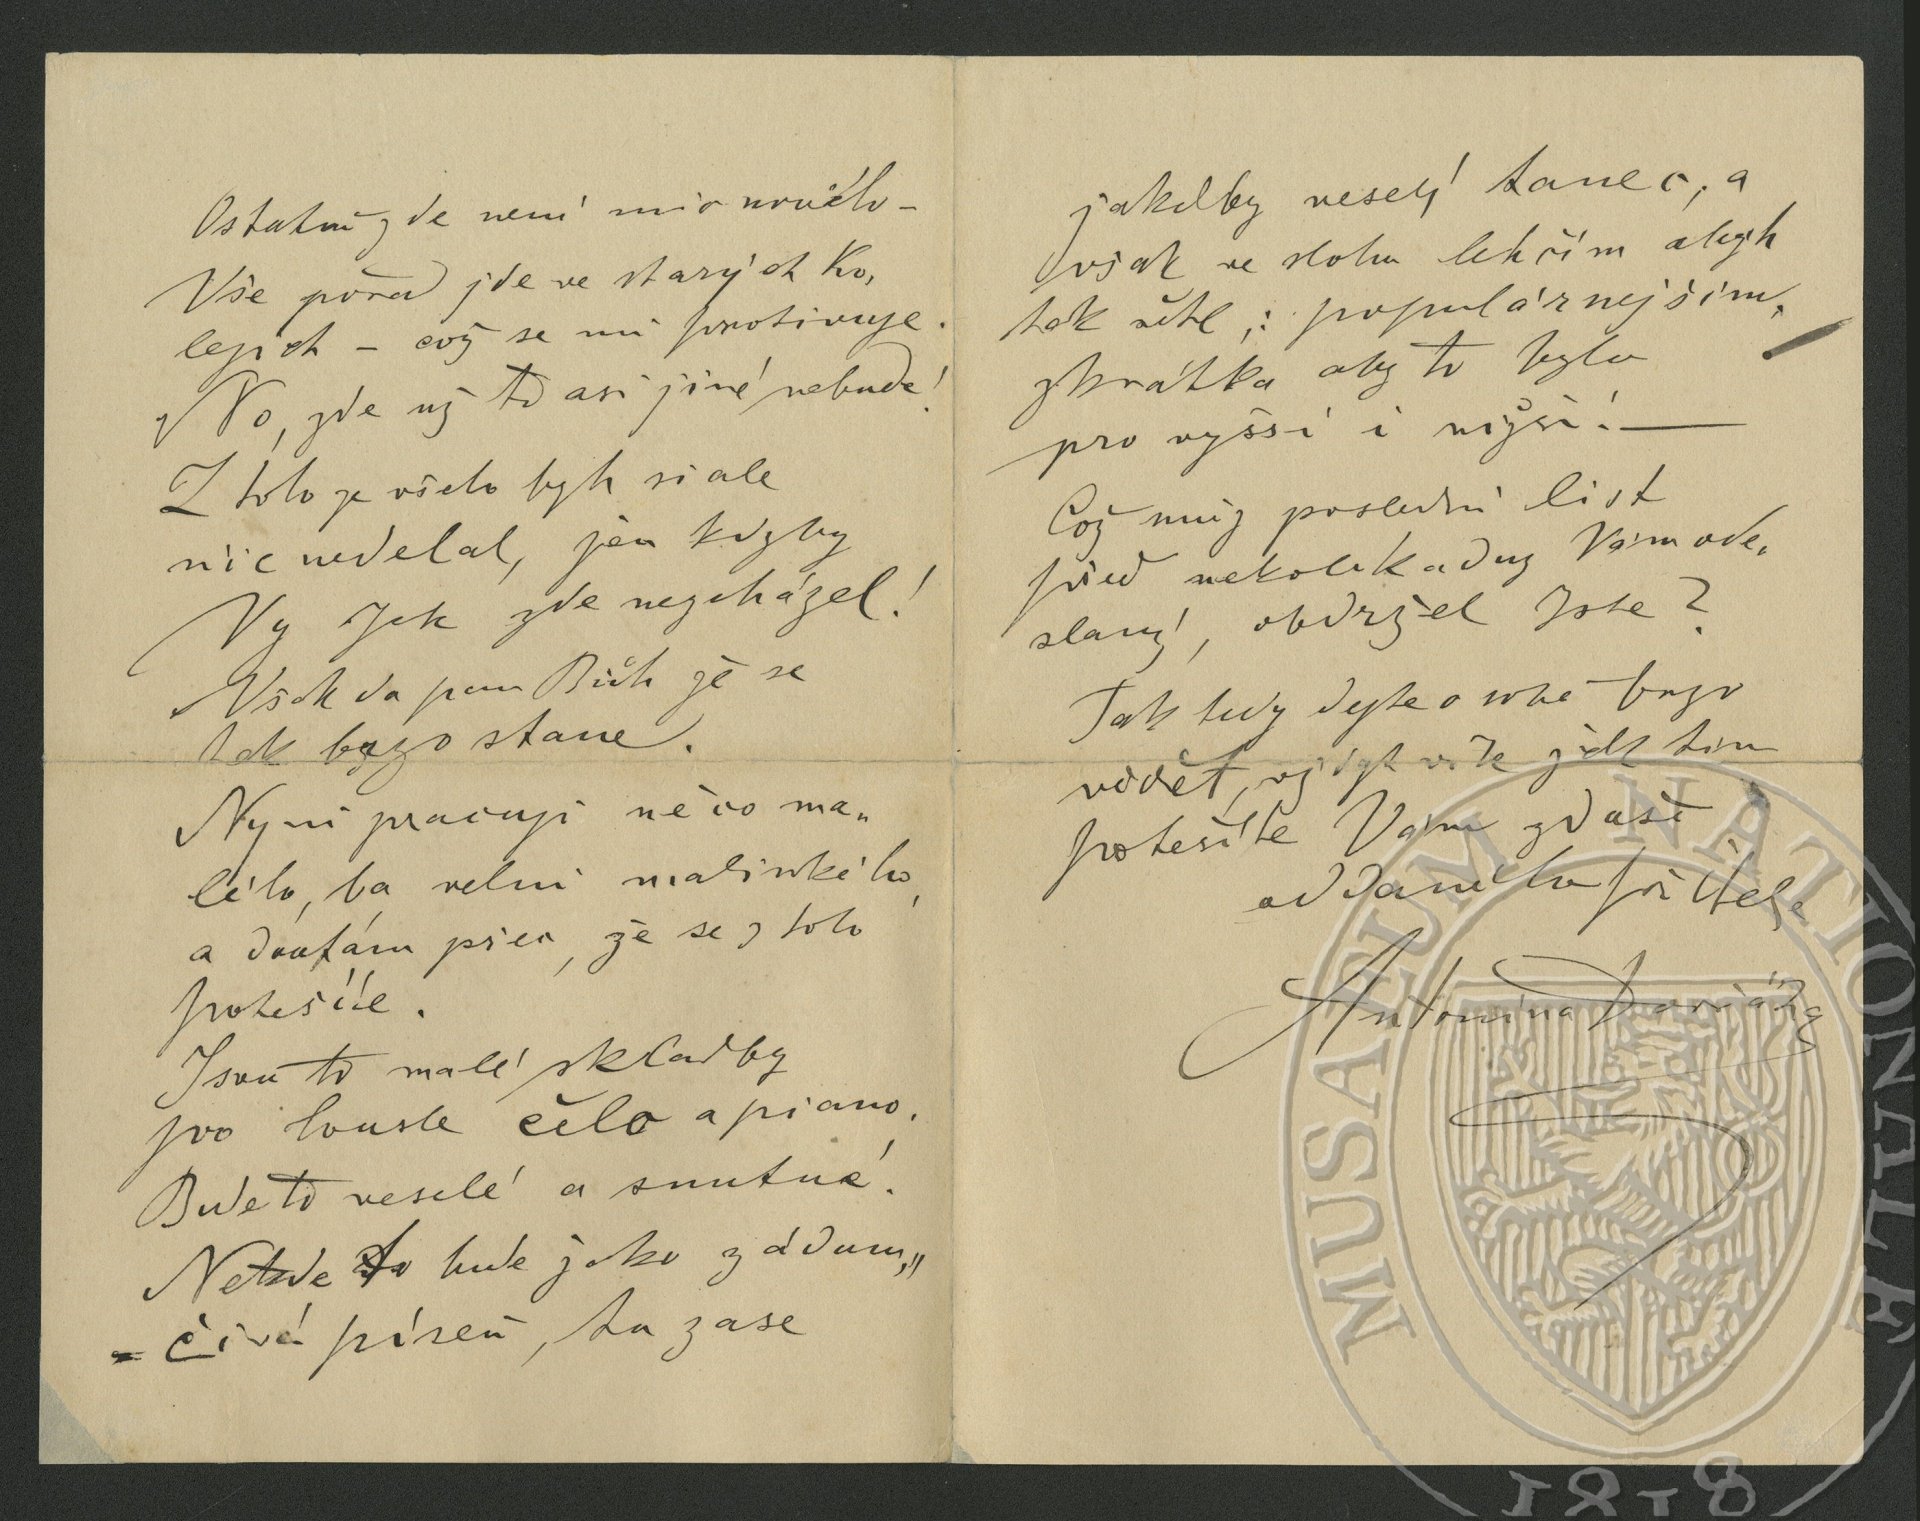 Ostatně zde není nic nového –
Vše pořád jde ve starých ko,
lejích – což se mi protivuje.
No, zde už to asi jiné nebude!
Z toho je všeho bych si ale
nic nedělal, jen kdyby
Vy zde nescházel!
Však dá pan Bůh že se
tak brzo stane.
Nyní pracuji něco ma„
lého, ba velmi malinkého,
a doufám přec, že se z toho
potešíte.
Jsou to malé skladby
pro housle čelo a piano.
Bude to veselé a smutné.
Nekde to bude jako zádum„
čivá píseň, tu zase
jakoby veselý tanec, a
však ve slohu lehčím abych
tak řekl, : populárnejším,
zkrátka aby to bylo
pro vyšší i nižší! —
Což můj poslední list
před nekolika dny Vám ode,
slaný, obdržel Jste?
Tak tedy dejte o sobě brzo
vědět, vždyt víte jak tím
potešíte Vám zvláště
oddaného přítele
Antonína Dvořáka
MUSAEUM NATIONALE
1818